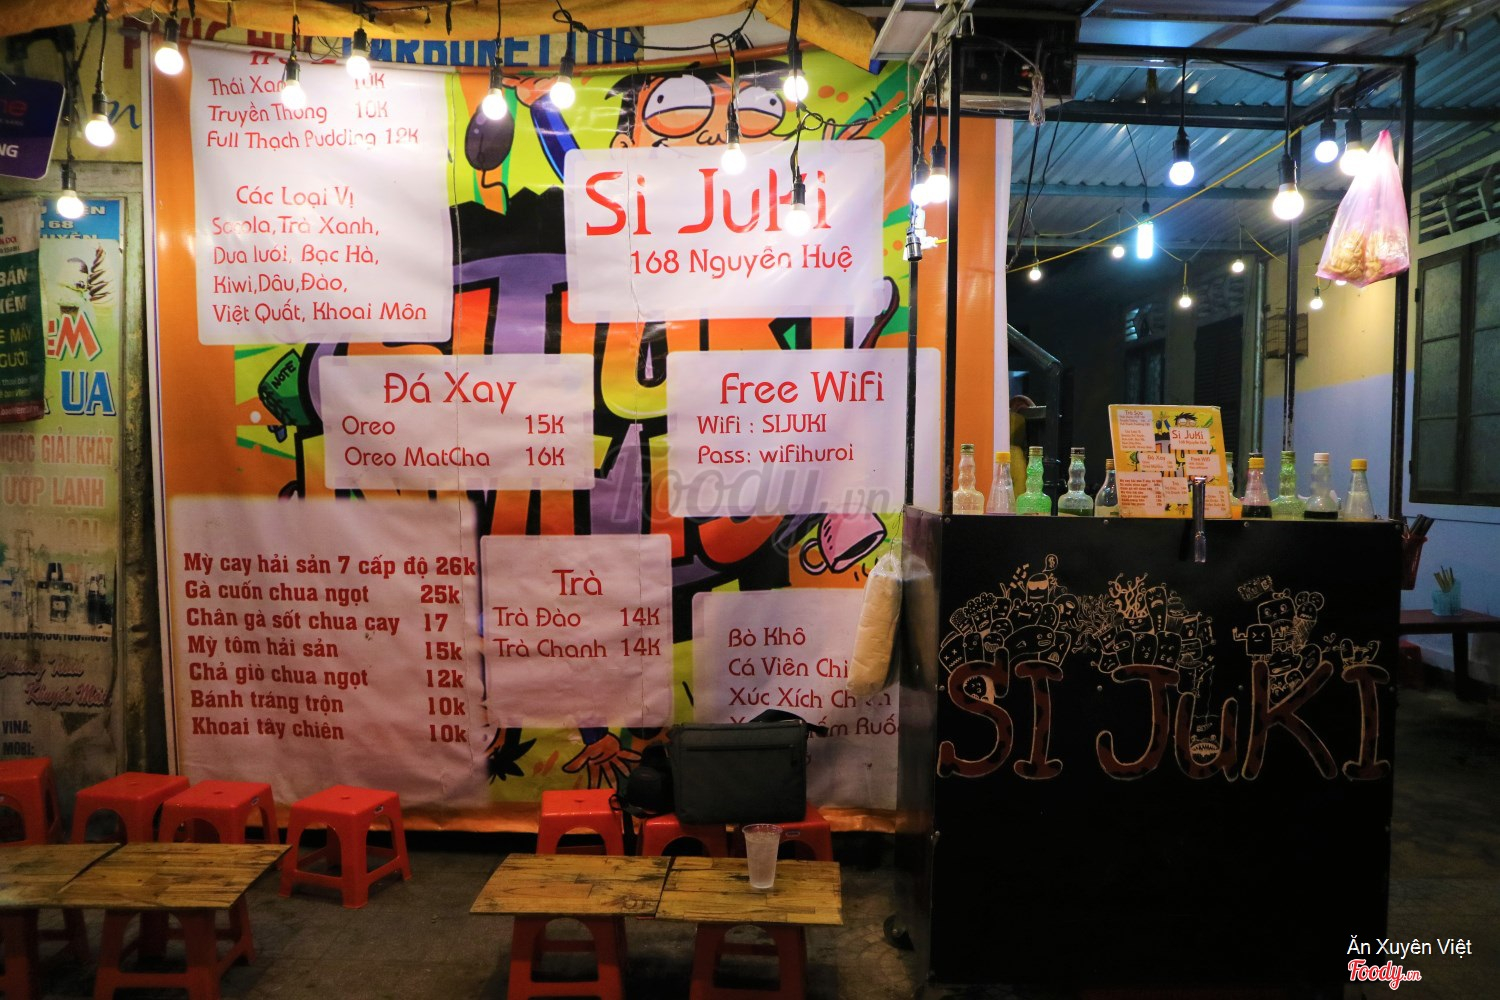 CARBONETTOR
Thái Xanh 10K
Truyền Thống 10K
Full Thạch Pudding 12K
Các Loại Vị
Socola,Trà Xanh,
Dưa lưới, Bạc Hà,
Kiwi,Dâu,Đào,
Việt Quất, Khoai Môn
Si JuKi
168 Nguyễn Huệ
Đá Xay
Oreo 15K
Oreo MatCha 16K
Free WiFi
WiFi : SIJUKI
Pass: wifihuroi
Mỳ cay hải sản 7 cấp độ 26k
Gà cuốn chua ngọt 25k
Chân gà sốt chua cay 17
Mỳ tôm hải sản 15k
Chả giò chua ngọt 12k
Bánh tráng trộn 10k
Khoai tây chiên 10k
Trà
Trà Đào 14K
Trà Chanh 14K
Bò Khô
Cá Viên Chi
Xúc Xích Chiên
Ruốc
NOTE
168
UA
NƯỚC GIẢI KHÁT
ƯỚP LẠNH
VINA:
MOBI:
Si JuKi
168 Nguyễn Huệ
Free WiFi
SI JuKI
Foody.vn
Ăn Xuyên Việt
Foody.vn